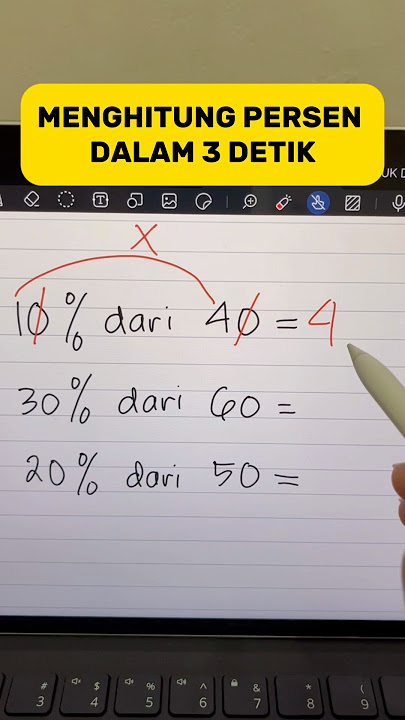 MENGHITUNG PERSEN
DALAM 3 DETIK
UK D
T
X
10% dari 40 = 4
30% dari 60 =
20% dari 50 =
# $ % ^ & * (
3 4 5 6 7 8 9